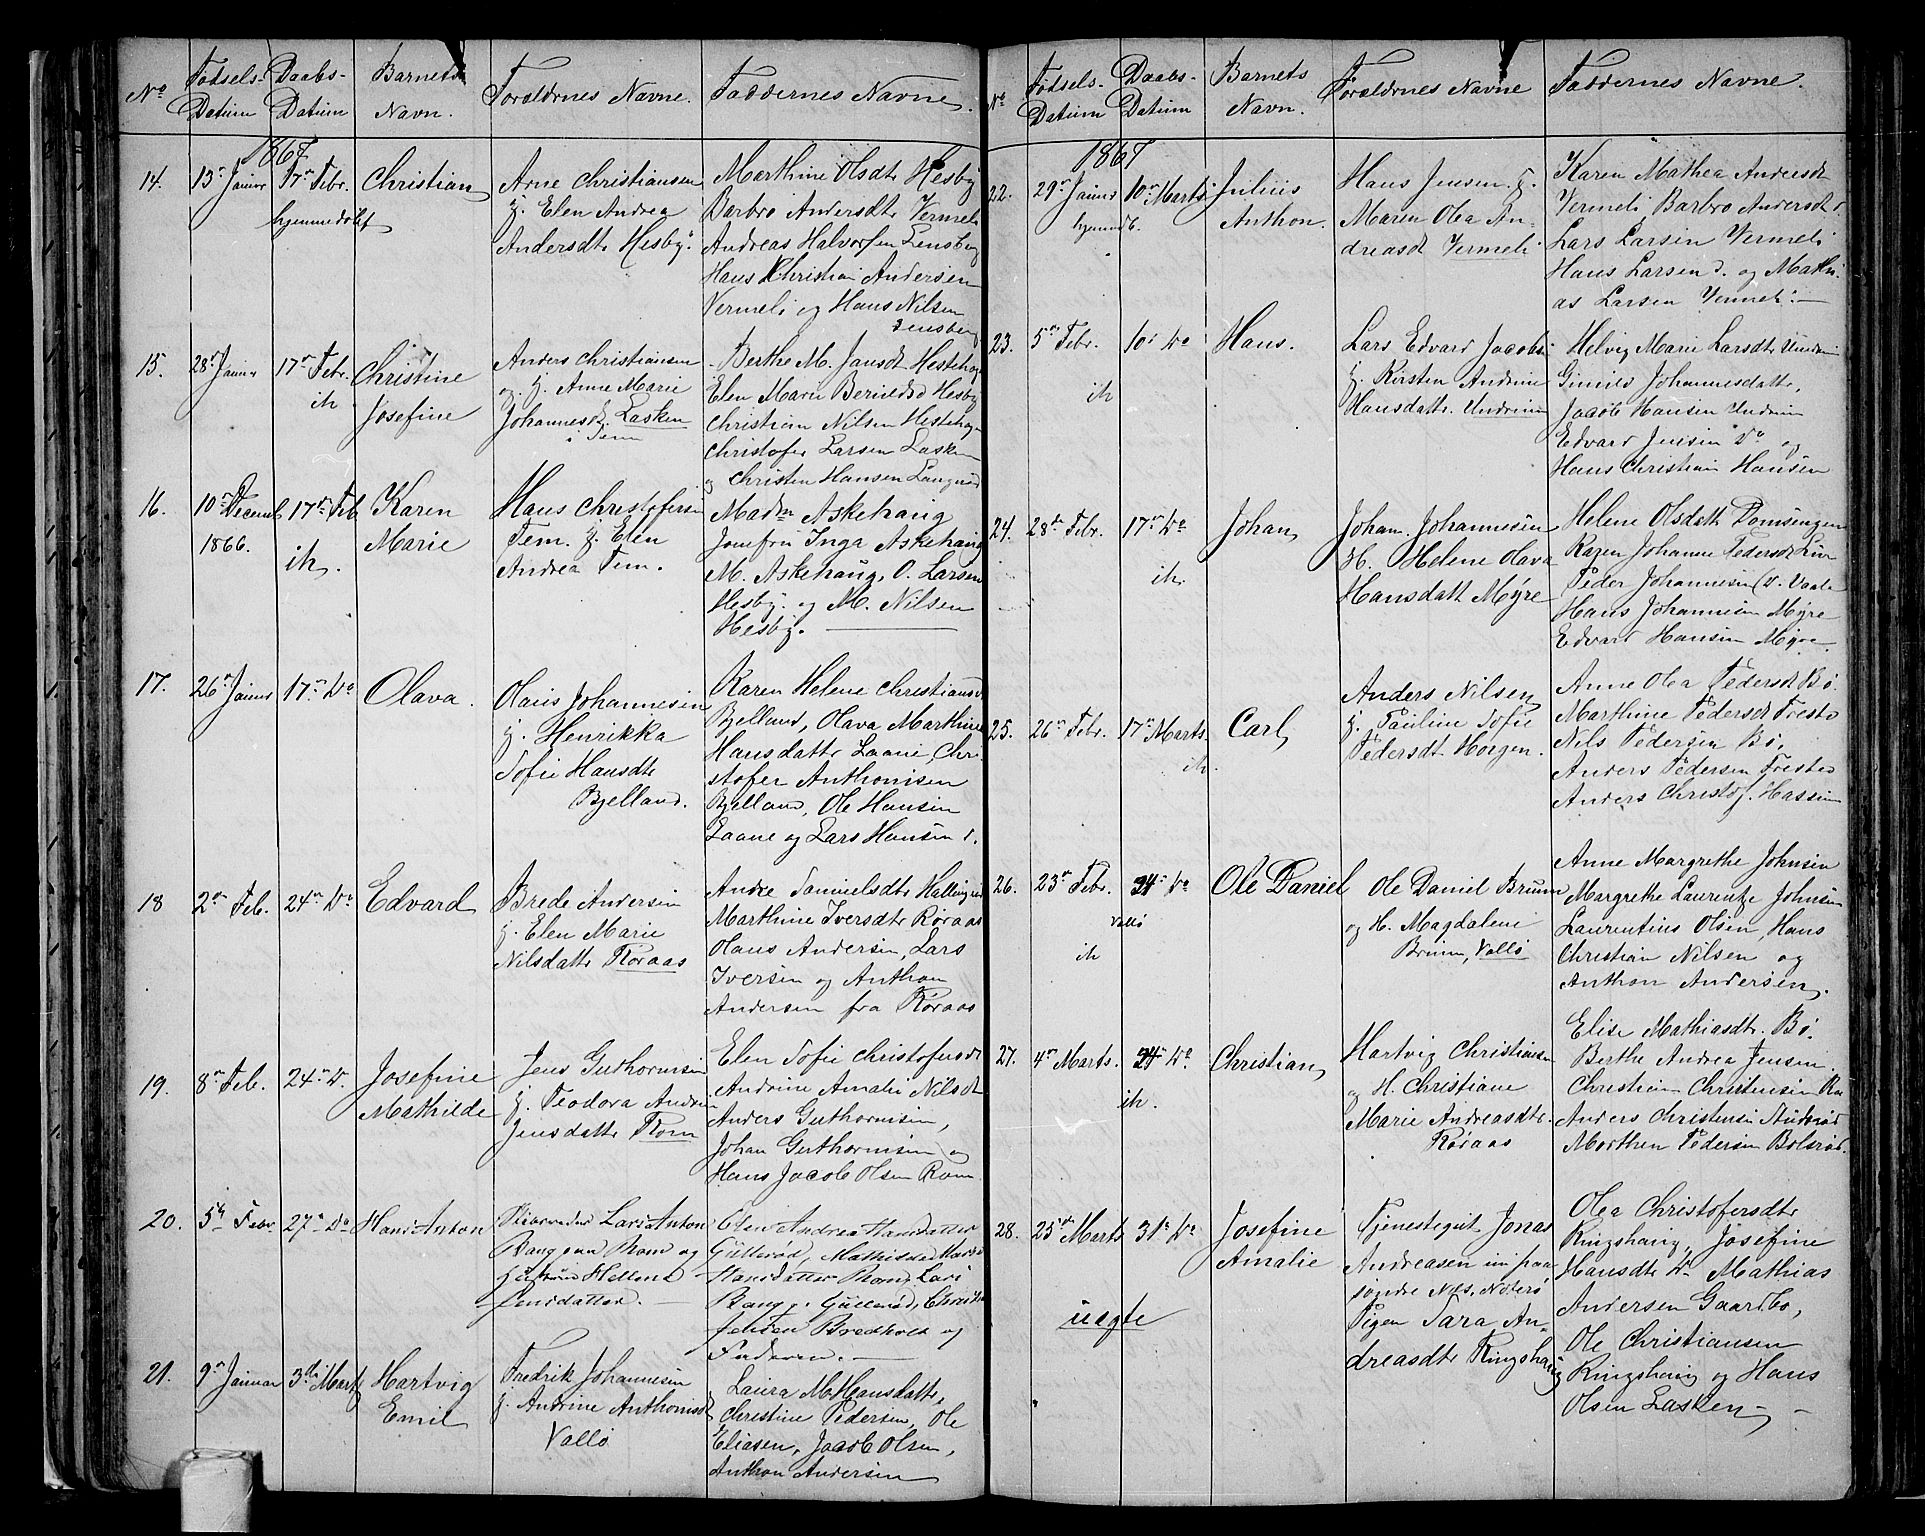 No
Fødsels-
Datum
Daabs-
Datum
Barnets
Navn.
Forældrnes Navne.
Faddernes Navne.
1867
14.
13de Januar
17de Febr.
hjemmedøbt
Christian
Arne Christiansen
Elen Andrea
Andersdtr Hesby
Marthine Olsdtr Hesby
Barbro Andersdtr Vermeli
Andreas Halvorsen Lensberg
Hans Christian Andersen
Vermeli og Hans Nilsen
Lensberg
15.
28 Januar
17de Febr.
ik
Christine
Josefine
Anders Christiansen
og H. Anne Marie
Johannesd. Lasken
i Tem
Berthe M. Jansdt Hestehag
Elen Marie Berntsd Hesby
Christian Nilsen Hestehag
Christofer Larsen Lasken
og Christen Hansen
16.
10de Decemb
1866.
17de Feb
ik.
Karen
Marie
Hans Christofersen
Tem. H. Elen
Andrea Tem.
Madm Askehaug
Jomfru Inga Askehaug
M. Askehaug, O. Larsen
Hesby. og M. Nilsen
Hesby.
17.
26de Januar
17de Do
Olava.
Olaus Johannesen
H. Henrikka
Sofie Hansdtr
Bjelland.
Karen Helene Christiansd
Bjelland, Olava Marthine
Hansdattr Laane, Chri
stofer Anthonisen
Bjelland, Ole Hansen
Laane og Lars Hansen
18
2de Feb.
24de Do
Edvard
Brede Andersen
H. Elen Marie
Nilsdattr Roraas
Andre Samuelsdtr
Marthine Iversdtr Roraas
Hans Andersen, Lars
Iversen og Anthon
Andersen fra Roraas
19.
8de Feb.
24de D.
Josefine
Mathilde
Jens Guthormsen
H. Teodora Andrea
Jensdattr Rom
Elen Sofie Christofersdt
Andrine Amalie Nilsdt
Anders Guthormsen,
Johan Guthormsen og
Hans Jacob Olsen Rom
20.
5te Febr
27de Do
Hans Anton
Lars Anton
Bang paa Rom og
Hellene
Jensdatter.
Elen Andrea Hansdatter
Gullerød, Mathisd
Hansdatter Rom, Lars
Bang, Gullerød, Christian
Jensen Bredholt og
Faderen.
21.
9de Januar
3die Marts
Hartvig
Emil
Fredrik Johannesen
H. Andrine Anthonisdt
Vallø
Laura M. Hansdattr,
Christine Pedersen, Ole
Eliasen, Jacob Olsen,
Anthon Andersen
No
Fødsels-
Datum
Daabs-
Datum
Barnets
Navn.
Forældrnes Navne
Faddernes Navne.
1867
22.
29de Januar
hjemmdb.
10de Marts
Julius
Anthon.
Hans Jensen. H.
Maren Olea An-
dreasdt Vermeli
Karen Mathea Andersdt
Vermeli, Barbro Andersdt d.
Lars Larsen Vermeli
Hans Larsen d. og Mathi
as Larsen Vermeli
23.
5te Febr.
ik
10de Do
Hans.
Lars Edvard Jacobs
H. Kirsten Andrine
Hansdattr. Undrum
Helvig Marie Larsdtr Undrum
Johannesdattr,
Jacob Hansen Undrum
Edvard Jensen Do og
Hans Christian Hansen
24.
28de Febr.
17de Do
ik.
Johan
Joham. Johannesen
H. Helene Olava
Hansdatt Myre
Helene Olsdattr Domsengen
Karen Johanne Pedersdt
Peder Johannesen
Hans Johannesen Myre
Edvard Hansen Myre
25.
26de Febr.
17de Marts
ik.
Carl
Anders Nilsen
H. Pauline Sofie
Pedersdt. Horgen.
Anne Olea Pedersdt Bø.
Marthine Pedersdt Fresto
Nils Pedersen Bø,
Anders Pedersen Fresto
Anders Christof. Hassum
26.
23de Febr.
ik
24de Do
Vallø
Ole Daniel
Ole Daniel Bruun
og H. Magdalene
Bruun, Vallø
Anne Margrethe Johnsen
Margrethe Laurentze Johnsen
Laurentius Olsen, Hans
Christian Nilsen og
Anthon Andersen.
27.
4de Marts.
24de Do.
ik.
Christian
Hartvig Christiansen
og H. Christiane
Marie Andreasdtr.
Roraas
Elise Mathiasdtr. Bø.
Berthe Andrea Jensen.
Christian Christensen
Anders Christensen
Morthen Pedersen Bolsrød.
28.
25de Marts
31de Do
uægte
Josefine
Amalie
Tjenestegut Jonas
Andreasen paa
søndre Nes, Nøterø
Pigen Sara An-
dreasdtr Ringshaug
Olea Christofersdtr
Ringshaug, Josefine
Hansdtr Do Mathias
Andersen Gaardbo,
Ole Christiansen
Ringshaug og Hans
Olsen Lasken